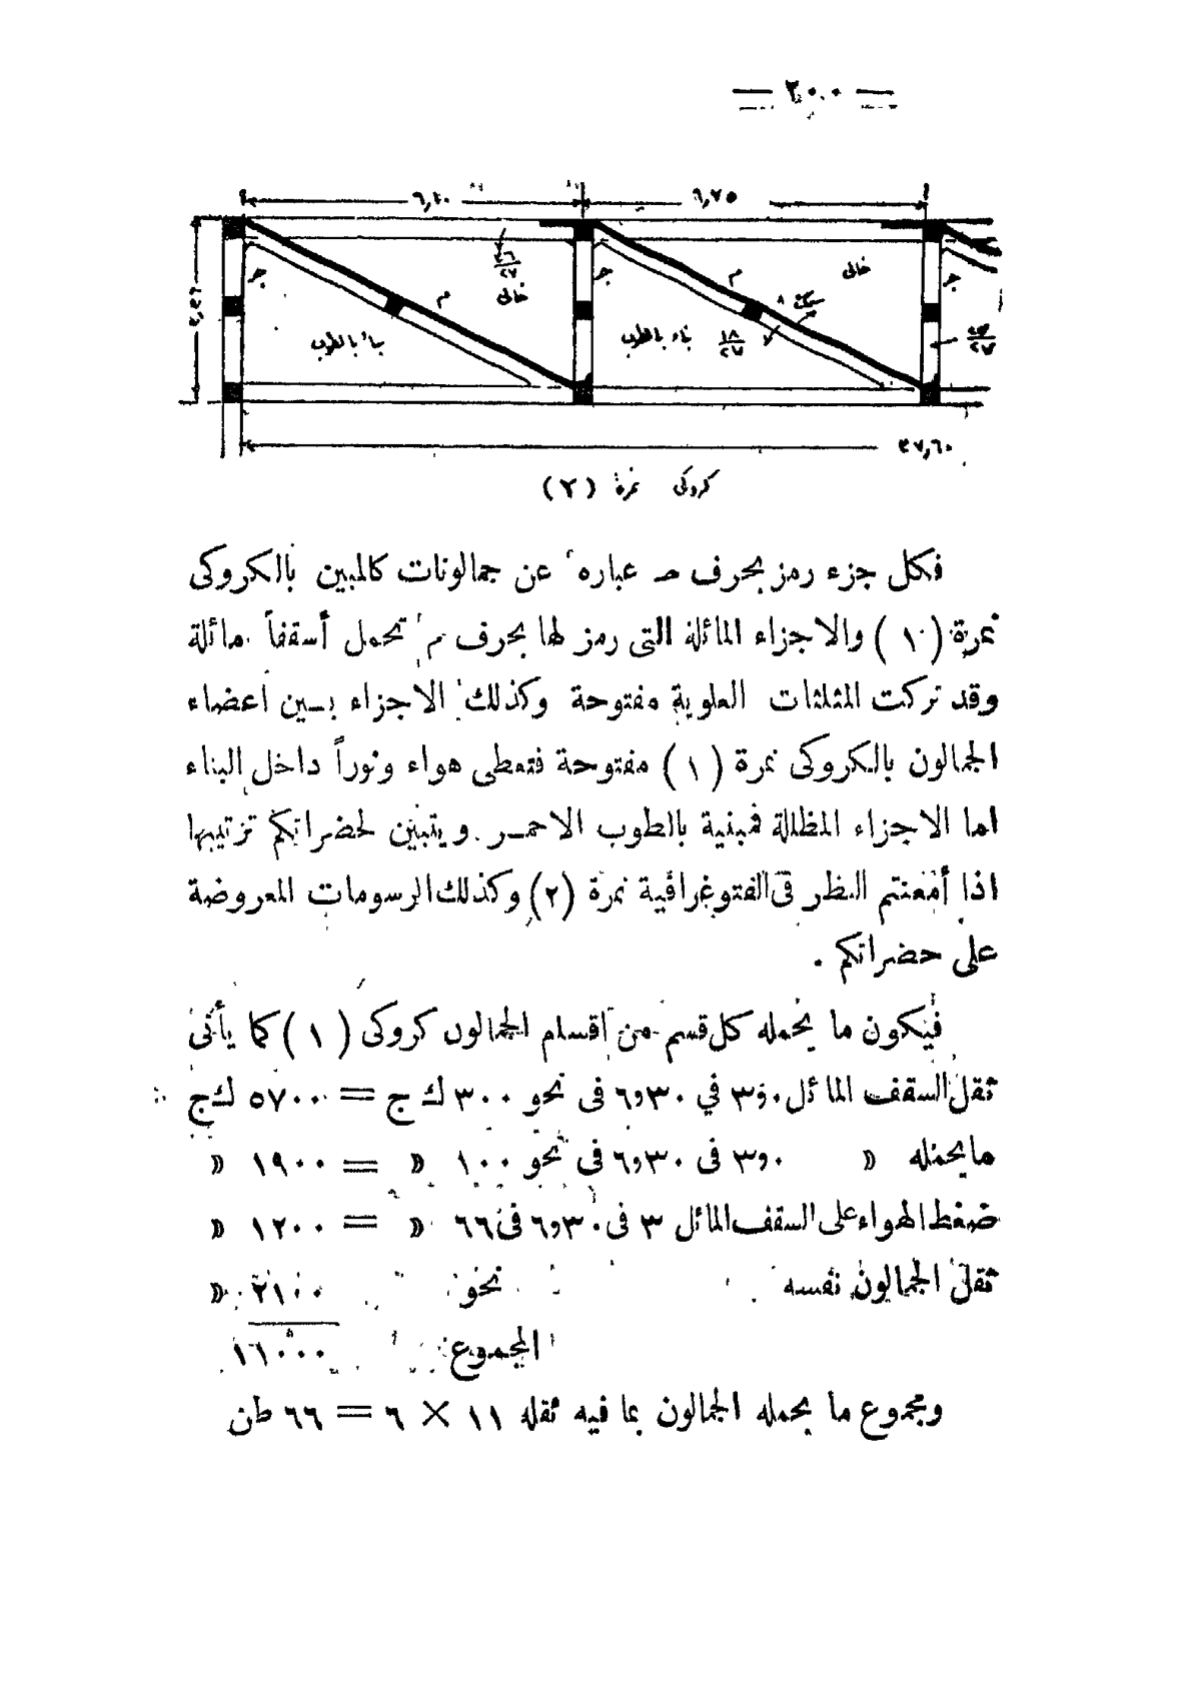 — ٢٠٠ —
٦,٧٥
خالى
م
خالى
م
بناء بالطوب
١٨
٢٧
بناء بالطوب
٢٧,٦٠
كروكى نمرة (٢)
فكل جزء رمز بحرف ﺻ عباره عن جمالونات كالمبين بالكروكى
نمرة (١) والاجزاء المائلة التى رمز لها بحرف م تحمل أسقفاً مائلة
وقد تركت المثلثات العلوية مفتوحة وكذلك الاجزاء بـين أعضاء
الجمالون بالكروكى نمرة (١) مفتوحة فتعطى هواء ونوراً داخل البناء
اما الاجزاء المظللة فمبنية بالطوب الاحمـر . ويتبين لحضراتكم ترتيبها
اذا أمعنتم النظر فى الفتوغرافية نمرة (٢) وكذلك الرسومات المعروضة
على حضراتكم .
فيكون ما يحمله كل قسم من اقسام الجمالون كروكى (١) كما يأتى
ثقل السقف المائل ٠و٣ في ٣٠و٦ فى نحو ٣٠٠ ك ج = ٥٧٠٠ ك ج
مايحمله » ٠و٣ فى ٣٠و٦ فى نحو ١٠٠ » = ١٩٠٠ »
ضغط الهواء على السقف المائل ٣ فى ٣٠و٦ فى ٦٦ » = ١٢٠٠ »
ثقل الجمالون نفسه نحو ٢١٠٠ »
المجموع ١٦٠٠٠
ومجموع ما يحمله الجمالون بما فيه ثقله ١١ × ٦ = ٦٦ طن